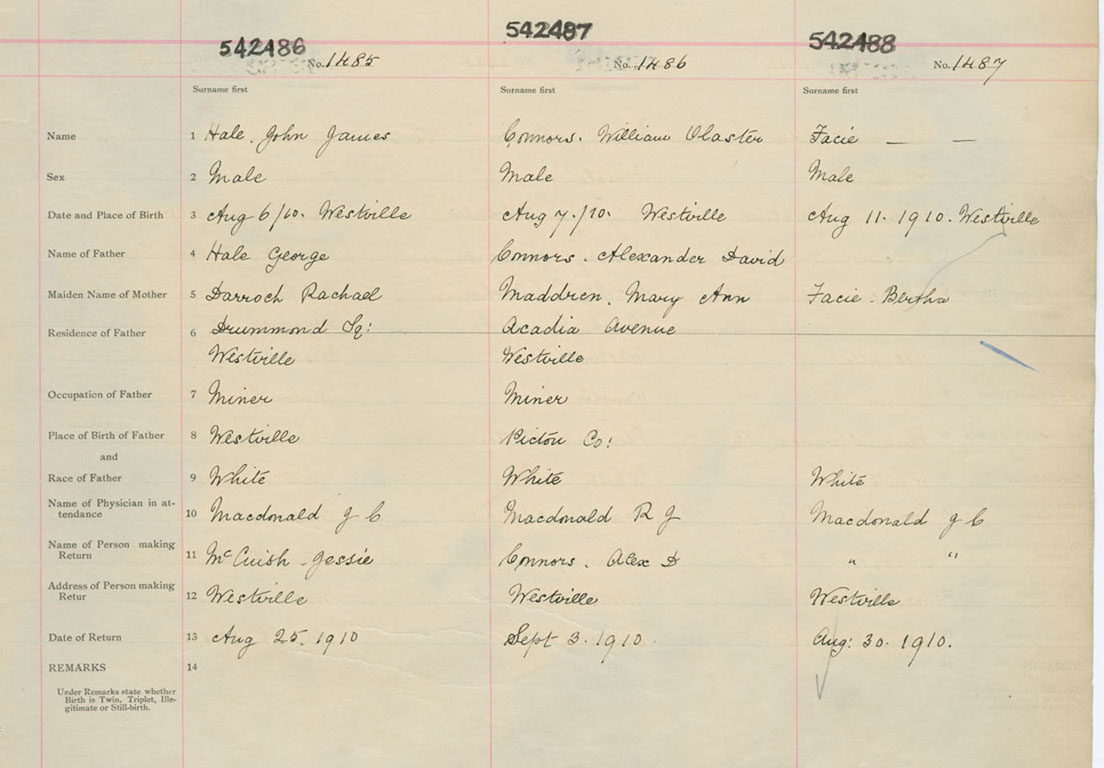 542486 542487 542488
No. 1485 No. 1486 No. 1487
Surname first Surname first Surname first
Name 1 Hale. John James Connors. William Olaster Facie — —
Sex 2 Male Male Male
Date and Place of Birth 3 Aug 6/10. Westville Aug 7./10. Westville Aug 11. 1910. Westville
Name of Father 4 Hale George Connors. Alexander David
Maiden Name of Mother 5 Darroch Rachael Maddren. Mary Ann Facie. Bertha
Residence of Father 6 Drummond Sq: Acadia Avenue
Westville Westville
Occupation of Father 7 Miner Miner
Place of Birth of Father 8 Westville Pictou Co:
and
Race of Father 9 White White White
Name of Physician in at-
tendance 10 Macdonald J C Macdonald R J Macdonald J C
Name of Person making
Return 11 McCuish Jessie Connors. Alex D " "
Address of Person making
Retur 12 Westville Westville Westville
Date of Return 13 Aug 25. 1910 Sept 3. 1910 Aug: 30. 1910.
REMARKS 14
Under Remarks state whether
Birth is Twin, Triplet, Ille-
gitimate or Still-birth.